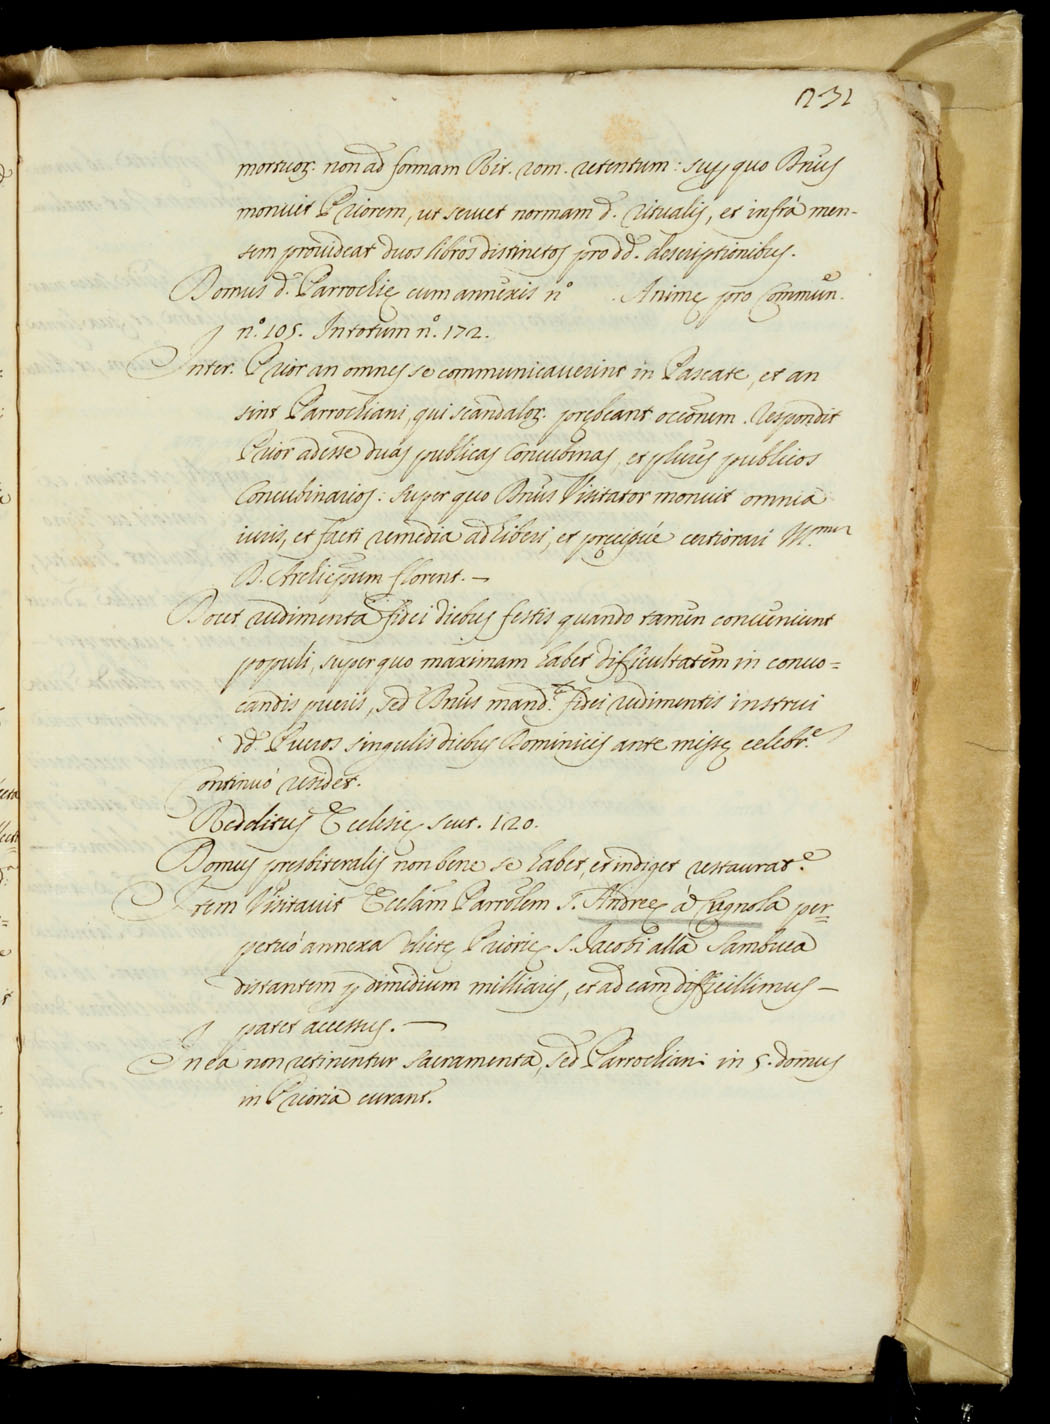 232
mortuoꝝ. non ad formam Rit. rom. retentum: super quo Dnus
monuit Priorem, ut servet normam d. ritualis, et infrà men-
sem provideat duos libros distinctos pro dd. descriptionibus.
Domus d. Parrochię cum annexis n.º Animę pro Commun.e
n.º 105. In totum n.º 172.
Inter. Prior an omnes se communicaverint in Pascate, et an
sint Parrochiani, qui scandaloꝝ. prębeant occōnem. Respondit
Prior adesse duas publicas Concubinas, et plures publicos
Concubinarios: super quo Dnus Visitator monuit omnia
iuris, et facti remedia adhiberi, et pręcipuè certiorari Ill.mum
D. Archiepum florent. —
Docet rudimenta fidei diebus festis quando tamen conveniunt
populi, super quo maximam habet difficultatem in convo=
candis pueris, sed Dnus mand.t fidei rudimentis instrui
dd. Pueros singulis diebus Dominicis ante missę celebr.e
Continuò residet.
Redditus Ecclesię scut. 120.
Domus presbiteralis non bene se habet, et indiget restaurat.e
Item Visitavit Ecclām Parrōlem S. Andreę à Cugnola per=
petuò annexa dictę Priorię S. Jacobi alla Sambuca
distantem p dimidium milliaris, et ad eam difficillimus —
patet accessus. —
In ea non retinentur sacramenta, sed Parrochiani in 5. domus
in Prioria curant.r